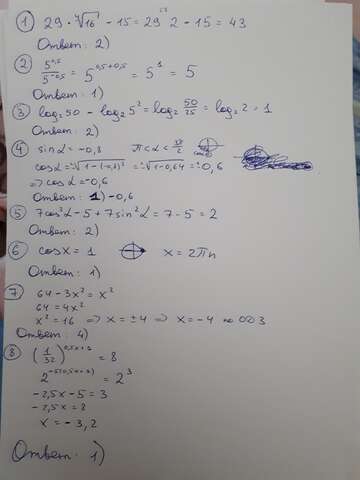 ① 29 · ⁴√16 - 15 = 29 · 2 - 15 = 43
Ответ: 2)
② 5^0,5 / 5^-0,5 = 5^0,5+0,5 = 5^1 = 5
Ответ: 1)
③ log₂ 50 - log₂ 5² = log₂ 50/25 = log₂ 2 = 1
Ответ: 2)
④ sinα = -0,8 π<α<3π/2
cosα = ±√1-(-0,8)² = ±√1-0,64 = ±0,6
⇒ cosα = -0,6
Ответ: 1) -0,6
⑤ 7cos²α - 5 + 7sin²α = 7 - 5 = 2
Ответ: 2)
⑥ cosx = 1 x = 2πn
Ответ: 1)
⑦ 64 - 3x² = x²
64 = 4x²
x² = 16 ⇒ x = ±4 ⇒ x = -4 по ОДЗ
Ответ: 4)
⑧ (1/32)^0,5x+1 = 8
2^-5(0,5x+1) = 2³
-2,5x - 5 = 3
-2,5x = 8
x = -3,2
Ответ: 1)